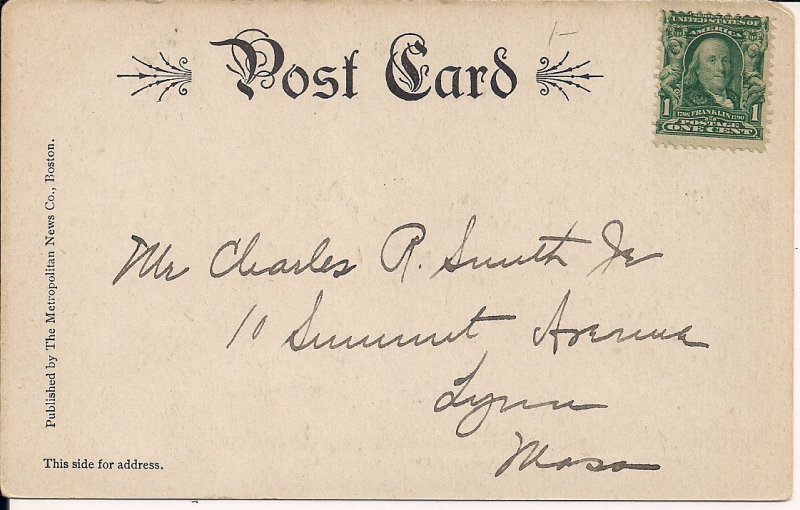 Post Card
1-
UNITED STATES OF
AMERICA
1 1706 FRANKLIN 1790 1
POSTAGE
ONE CENT
Published by The Metropolitan News Co., Boston.
Mr Charles R. Smith Jr
10 Summit Avenue
Lynn
Mass
This side for address.